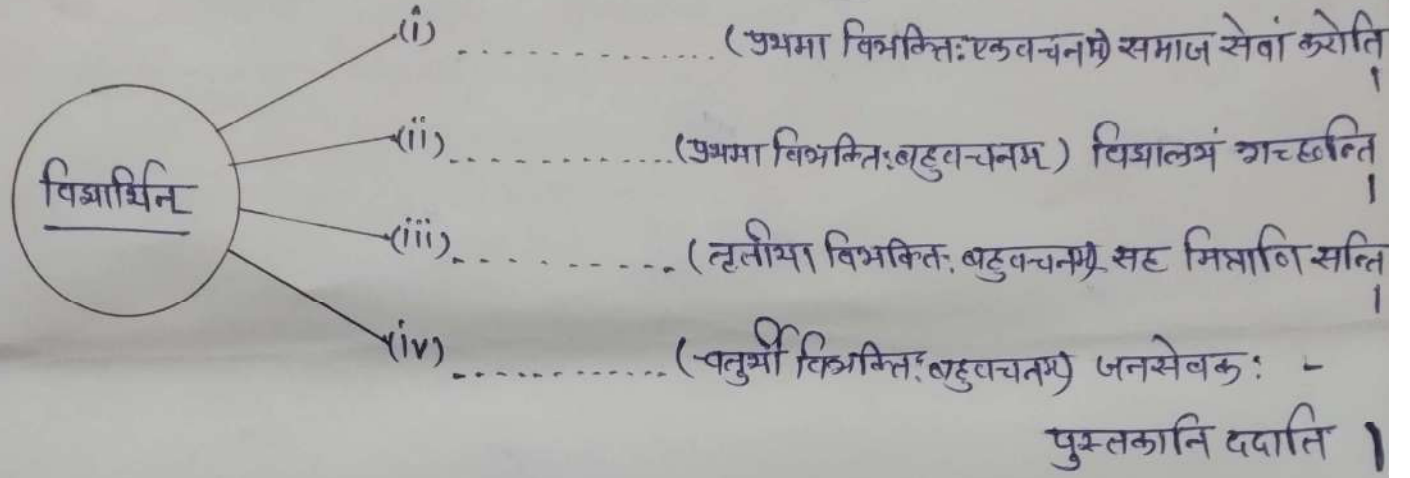 (i) ............ (प्रथमा विभक्तिः एकवचनम्) समाज सेवां करोति ।
(ii) ............ (प्रथमा विभक्तिः बहुवचनम्) विद्यालयं गच्छन्ति ।
विद्यार्थिन्
(iii) ............ (तृतीया विभक्तिः बहुवचनम्) सह मित्राणि सन्ति ।
(iv) ............ (चतुर्थी विभक्तिः बहुवचनम्) जनसेवकः -
पुस्तकानि ददाति ।